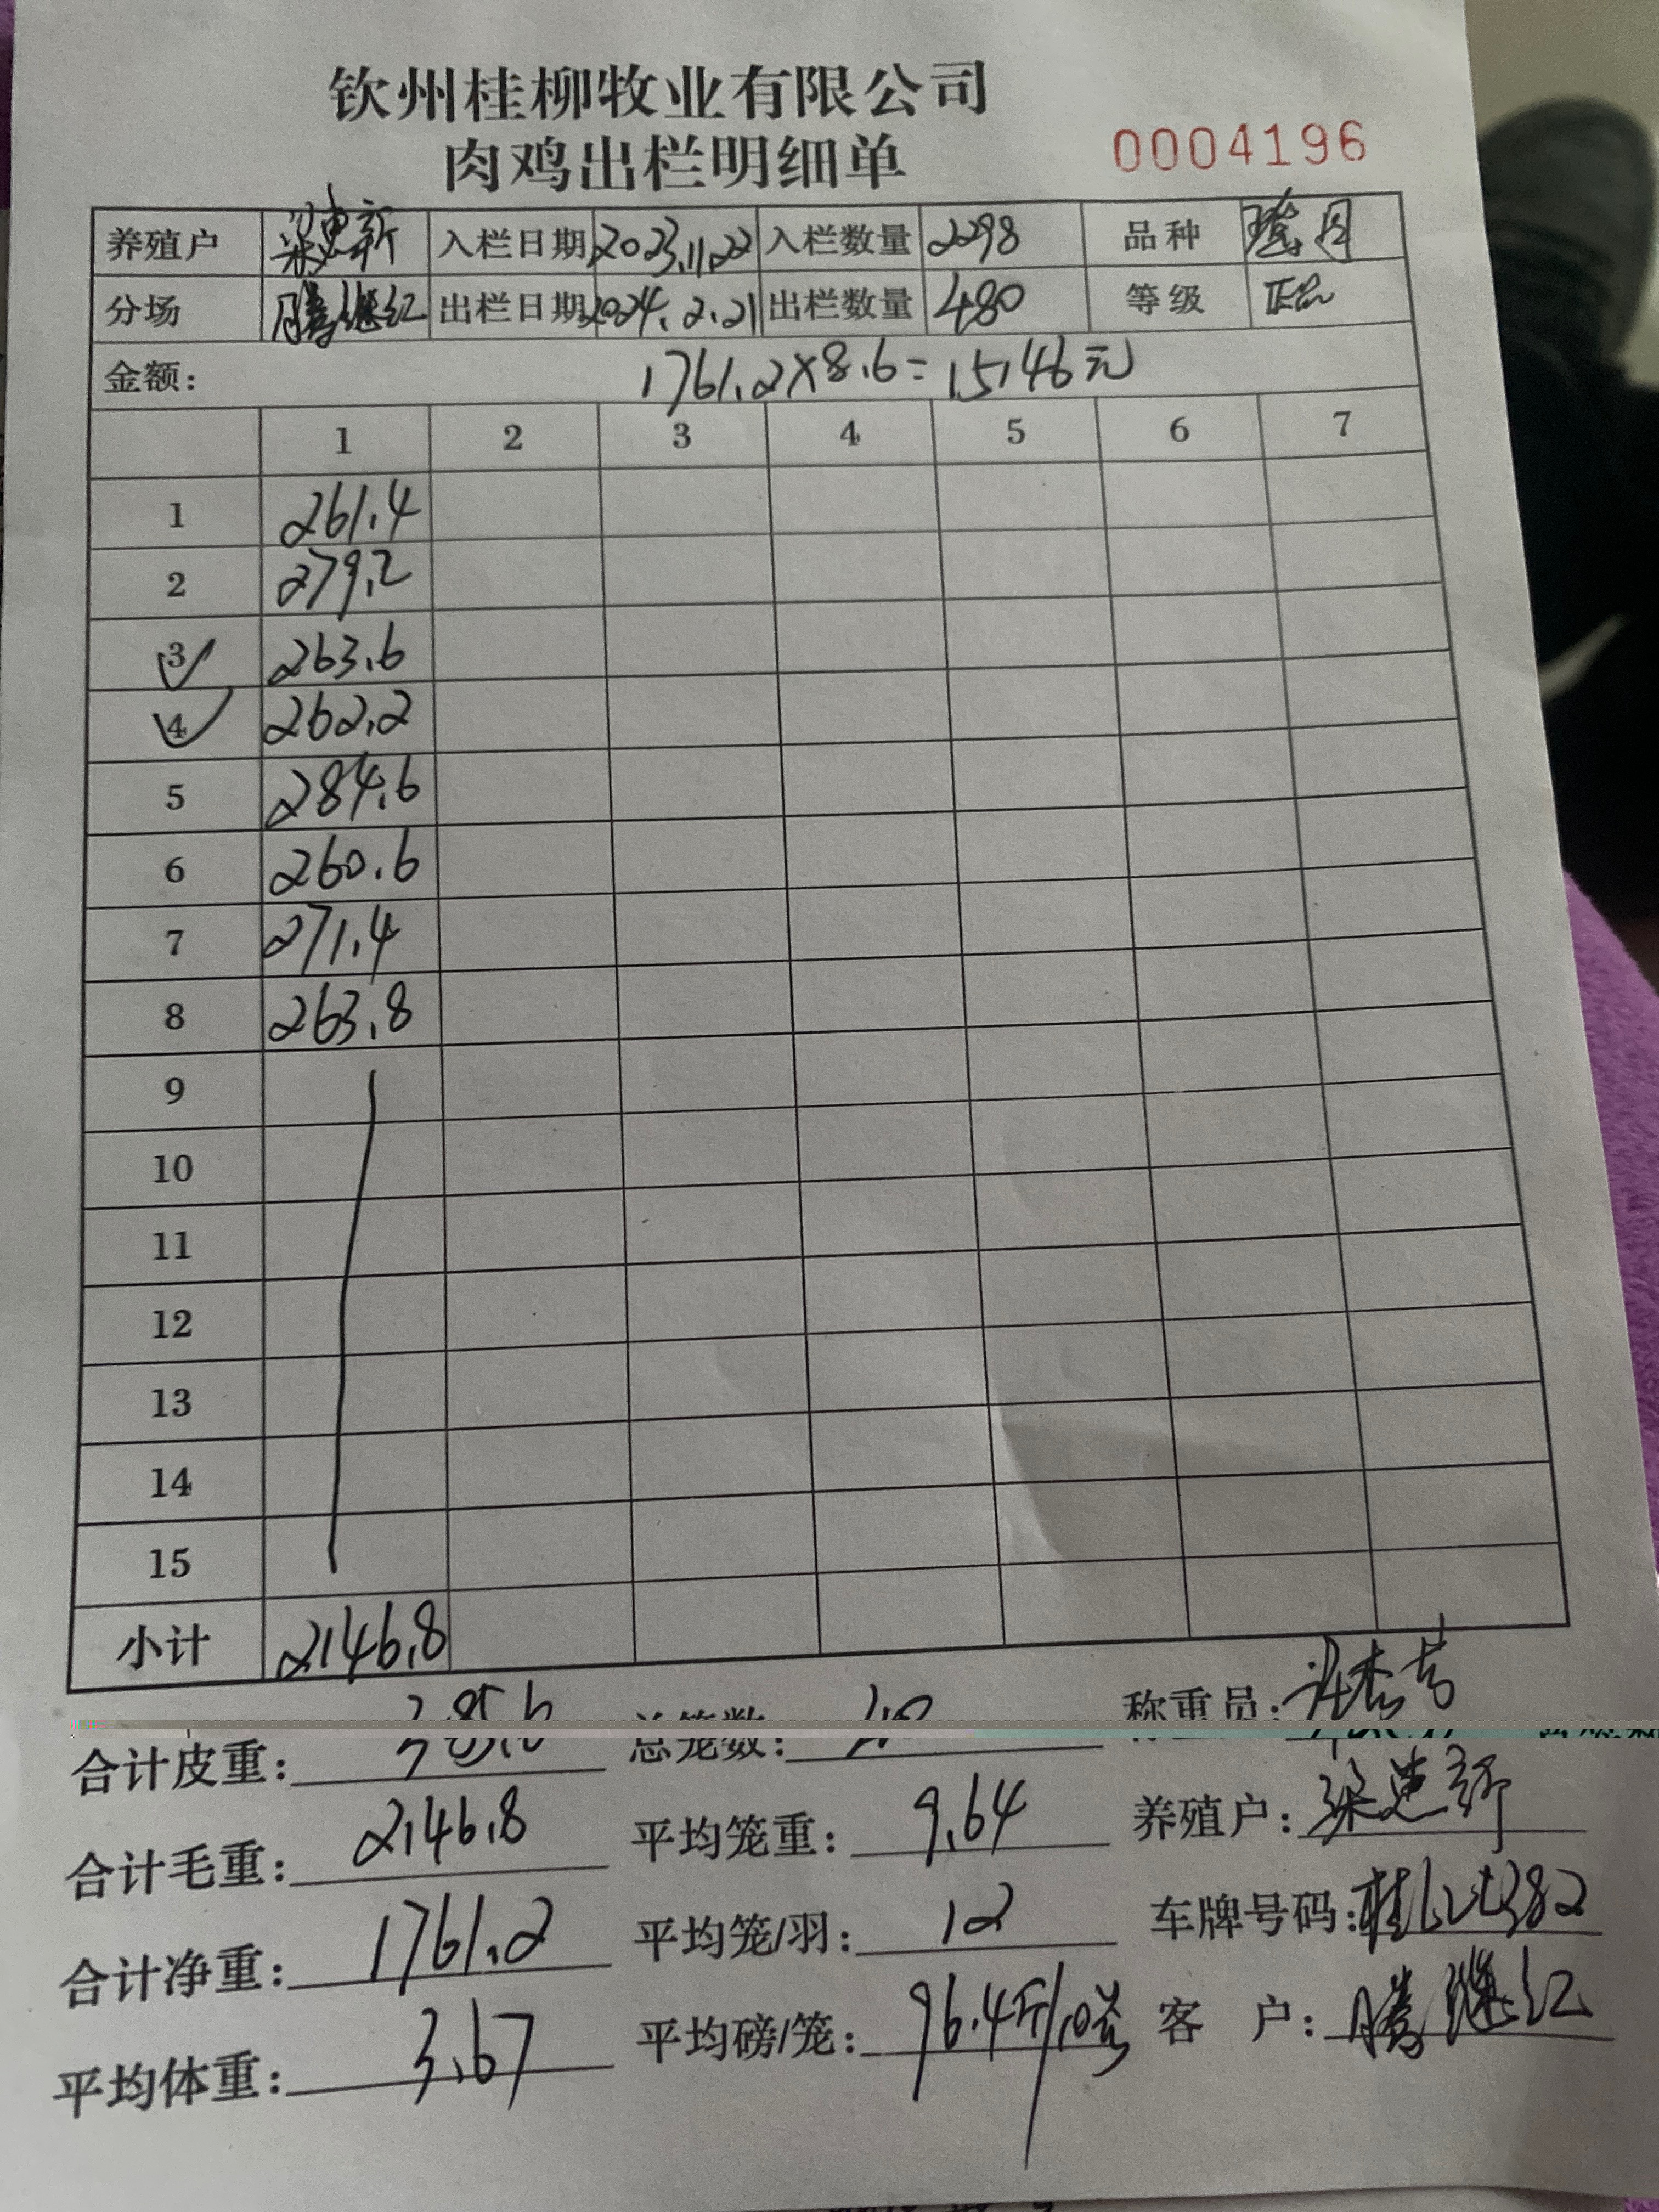 钦州桂柳牧业有限公司
肉鸡出栏明细单 0004196
养殖户 梁惠新 入栏日期 2023.11.22 入栏数量 2298 品种
分场 腾继红 出栏日期 2024.2.21 出栏数量 480 等级 正品
金额: 1761.2×8.6=15146元
1 2 3 4 5 6 7
1 261.4
2 279.2
3 263.6
4 262.2
5 284.6
6 260.6
7 271.4
8 263.8
9
10
11
12
13
14
15
小计 2146.8
合计皮重: 385.6 总笼数: 40 称重员:
合计毛重: 2146.8 平均笼重: 9.64 养殖户: 梁惠新
合计净重: 1761.2 平均笼/羽: 12 车牌号码:
平均体重: 3.67 平均磅/笼: 96.4斤/10 客户: 腾继红